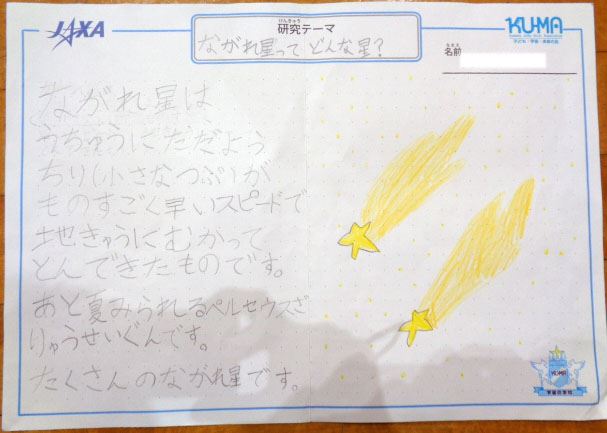 JAXA
けんきゅう
研究テーマ
ながれ星って どんな星?
KU-MA
子ども・宇宙・未来の会
なまえ
名前
ながれ星は
うちゅうにただよう
ちり(小さなつぶ)が
ものすごく早いスピードで
地きゅうにむかって
とんできたものです。
あと夏みられるペルセウスざ
りゅうせいぐんです。
たくさんのながれ星です。
KUMA
宇宙の学校